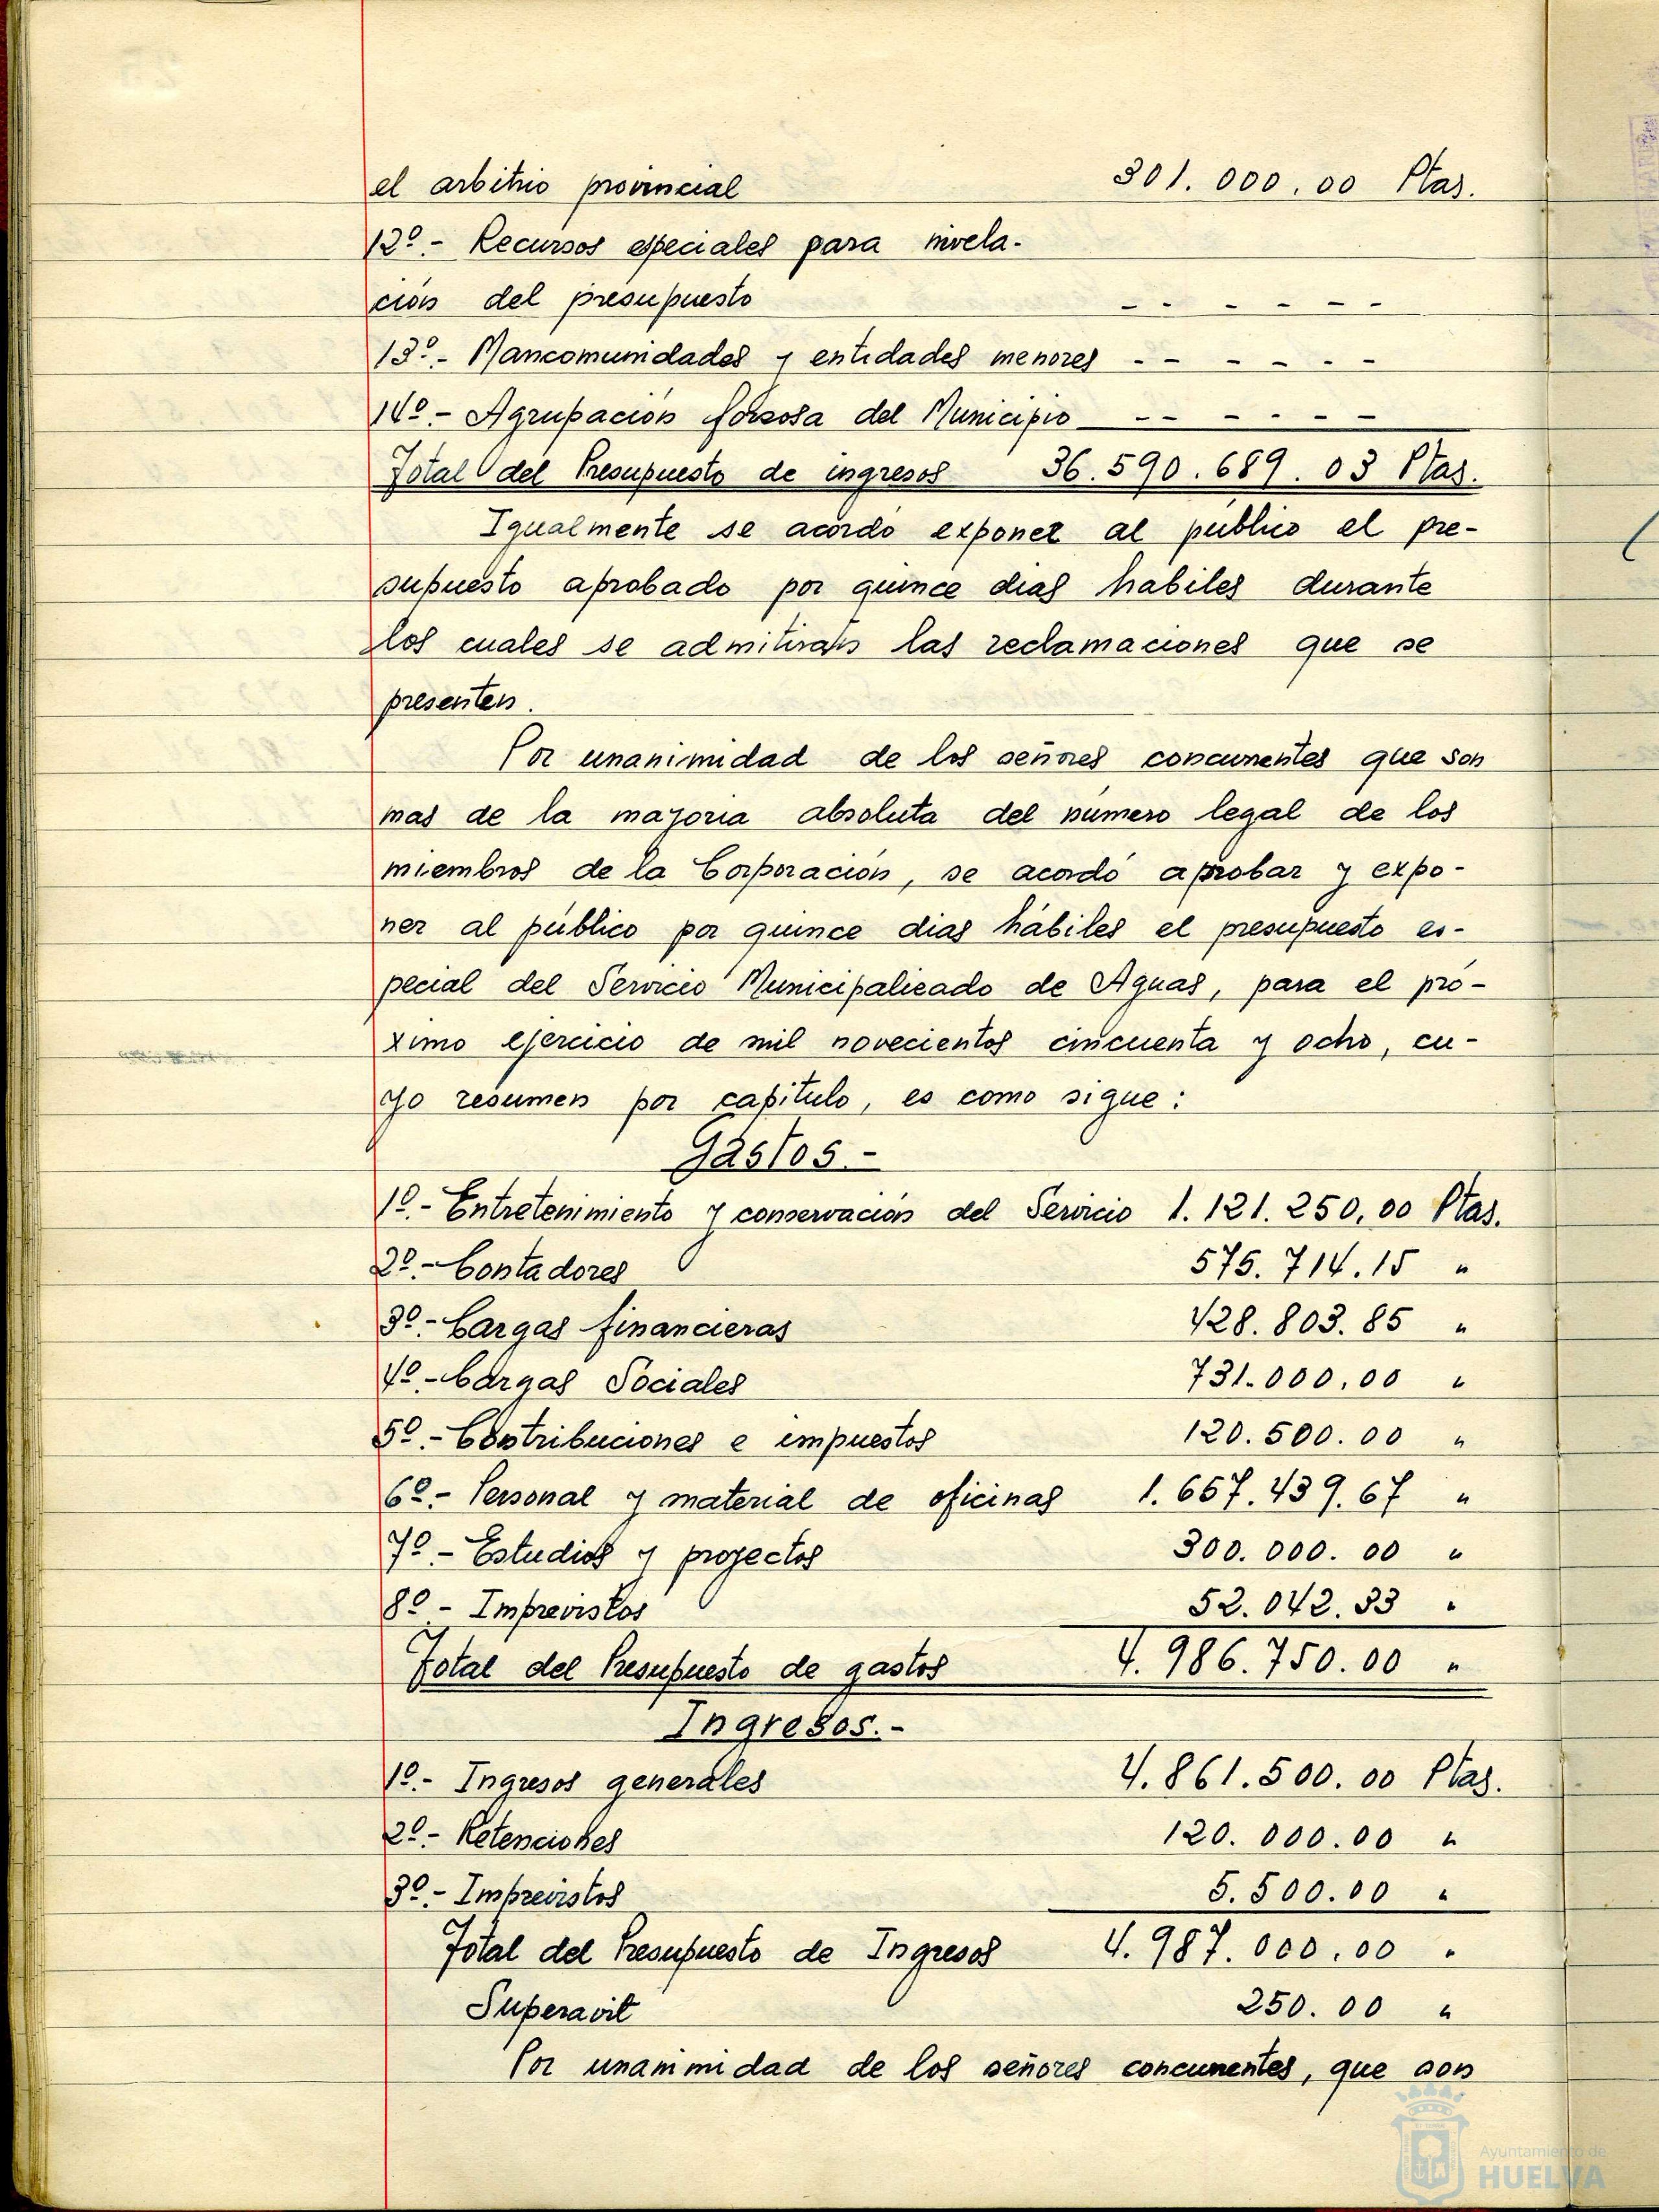 el arbitrio provincial 301.000.00 Ptas.
12º.- Recursos especiales para nivela-
ción del presupuesto - - - - - -
13º.- Mancomunidades y entidades menores - - - - - -
14º.- Agrupación forzosa del Municipio - - - - - -
Total del Presupuesto de ingresos 36.590.689.03 Ptas.
Igualmente se acordó exponer al público el pre-
supuesto aprobado por quince dias habiles durante
los cuales se admitirán las reclamaciones que se
presenten.
Por unanimidad de los señores concurrentes que son
mas de la mayoria absoluta del número legal de los
miembros de la Corporación, se acordó aprobar y expo-
ner al público por quince dias hábiles el presupuesto es-
pecial del Servicio Municipalizado de Aguas, para el pró-
ximo ejercicio de mil novecientos cincuenta y ocho, cu-
yo resúmen por capítulo, es como sigue:
Gastos.-
1º.- Entretenimiento y conservación del Servicio 1.121.250,00 Ptas.
2º.- Contadores 575.714.15 "
3º.- Cargas financieras 428.803.85 "
4º.- Cargas Sociales 731.000.00 "
5º.- Contribuciones e impuestos 120.500.00 "
6º.- Personal y material de oficinas 1.657.439.67 "
7º.- Estudios y proyectos 300.000.00 "
8º - Imprevistos 52.042.33 "
Total del Presupuesto de gastos 4.986.750.00 "
Ingresos.-
1º.- Ingresos generales 4.861.500.00 Ptas.
2º.- Retenciones 120.000.00 "
3º.- Imprevistos 5.500.00 "
Total del Presupuesto de Ingresos 4.987.000.00 "
Superavit 250.00 "
Por unanimidad de los señores concurrentes, que son
Ayuntamiento de
HUELVA